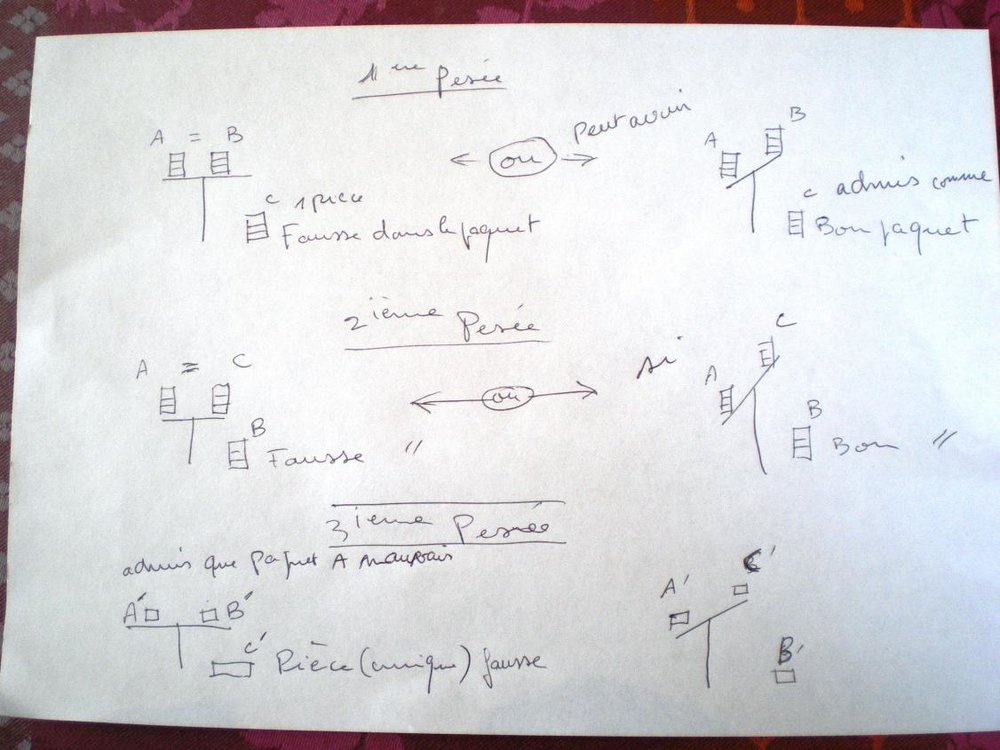 1ère Pesée
A = B
ou
Peut avoir
A
B
C 1 pièce
Fausse dans le paquet
C admis comme
Bon paquet
2ième Pesée
A = C
ou
si
A
C
B
Fausse "
B
Bon "
3ième Pesée
admis que paquet A mauvais
A' B'
C'
Pièce (unique) fausse
A'
C'
B'